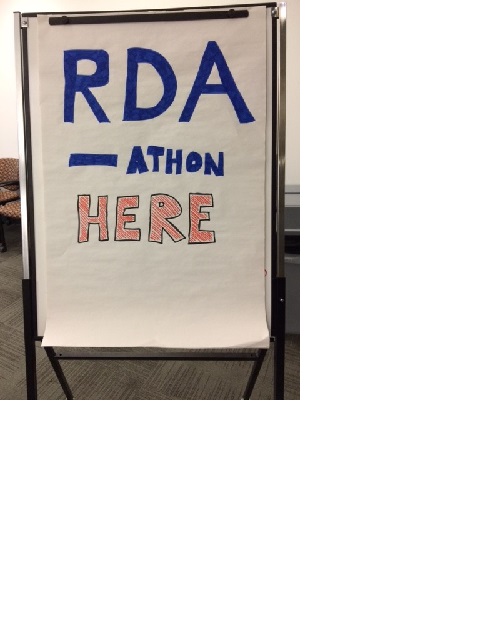 RDA
- ATHON
HERE